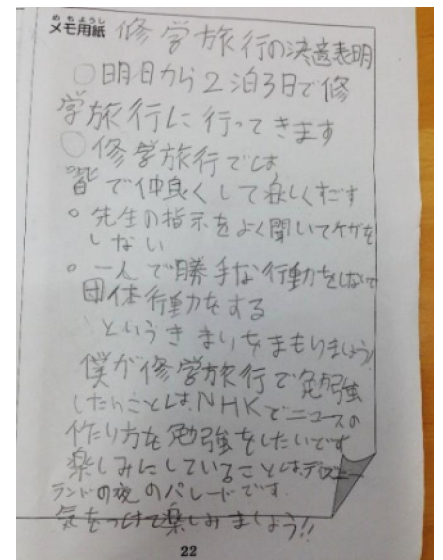 めもようし
メモ用紙 修学旅行の決意表明
○明日から2泊3日で修
学旅行に行ってきます
○修学旅行では
皆で仲良くして楽しくすごす
○先生の指示をよく聞いてケガを
しない
○一人で勝手な行動をしないで
団体行動をする
というきまりをまもりましょう
僕が修学旅行で勉強
したいことは、NHKでニュースの
作り方を勉強をしたいです
楽しみにしていることはディズニー
ランドの夜のパレードです.
気をつけて楽しみましょう!!
22